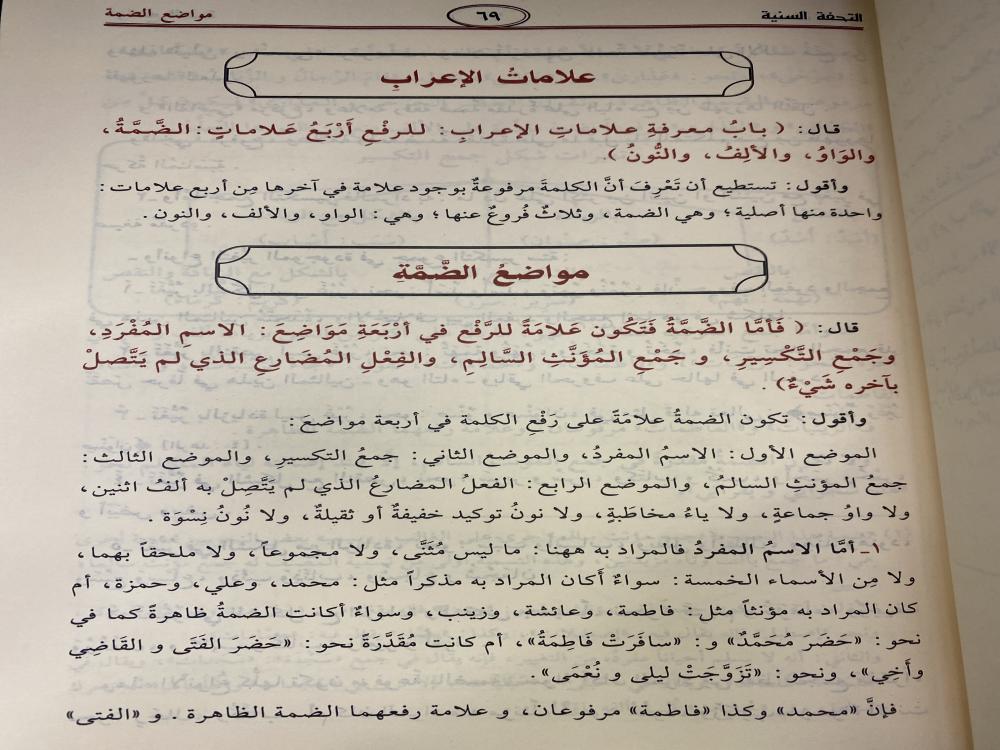 التحفة السنية ٦٩ مواضع الضمة
علاماتُ الإعرابِ
قال: ( بابُ معرفةِ علاماتِ الإعرابِ: للرفْعِ أَرْبَعُ عَلاماتٍ: الضَّمَّةُ،
والوَاوُ، والألِفُ، والنُّونُ ).
وأقول: تستطيع أن تَعْرِفَ أنَّ الكلمةَ مرفوعةٌ بوجود علامة في آخرها مِن أربع علامات:
واحدة منها أصلية؛ وهي الضمة، وثلاثٌ فُروعٌ عنها؛ وهي: الواو، والألف، والنون.
مواضعُ الضَّمَّةِ
قال: ( فَأمَّا الضَّمَّةُ فَتَكُون عَلامَةً للرَّفْع في أرْبَعَةِ مَوَاضِعَ: الاسمِ المُفْرَدِ،
وجَمْعِ التَّكْسِيرِ، و جَمْعِ المُؤَنَّثِ السَّالِمِ، والفِعْلِ المُضَارعِ الذي لم يَتَّصلْ
بآخره شَيْءٌ) .
وأقول: تكون الضمةُ علامَةً على رَفْعِ الكلمة في أربعة مواضعَ:
الموضع الأول: الاسمُ المفردُ، والموضع الثاني: جمعُ التكسيرِ، والموضع الثالث:
جمعُ المؤنثِ السالمُ، والموضع الرابع: الفعلُ المضارعُ الذي لم يَتَّصِلْ به ألفُ اثنين،
ولا واوُ جماعةٍ، ولا ياءُ مخاطَبةٍ، ولا نونُ توكيد خفيفةٌ أو ثقيلةٌ، ولا نُونُ نِسْوَة .
١ـ أمَّا الاسمُ المفردُ فالمراد به ههنا: ما ليس مُثَنَّى، ولا مجموعاً، ولا ملحقاً بهما،
ولا مِن الأسماء الخمسة: سواءٌ أَكان المراد به مذكراً مثل: محمد، وعلي، وحمزة، أم
كان المراد به مؤنثاً مثل: فاطمة، وعائشة، وزينب، وسواءٌ أكانت الضمةُ ظاهرةً كما في
نحو: «حَضَرَ مُحَمَّدٌ» و: «سافَرَتْ فَاطِمَةُ»، أم كانت مُقَدَّرَةً نحو: «حَضَرَ الفَتَى و القَاضِي
وأَخِي»، ونحو: «تَزَوَّجَتْ ليلى و نُعْمَى».
فإنَّ «محمد» وكذا «فاطمة» مرفوعان، و علامة رفعهما الضمة الظاهرة . و «الفتى»